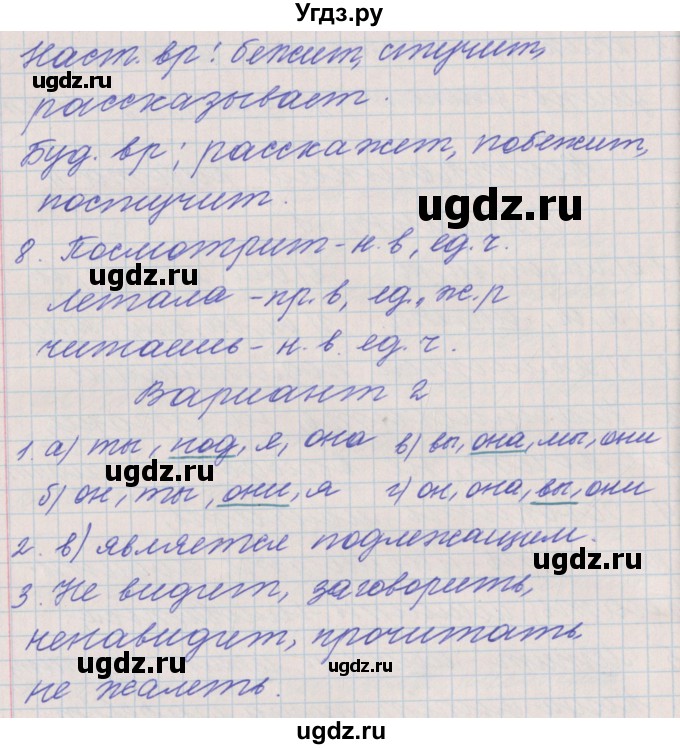 Угдз.ру
Наст. вр: бежит, стучит,
рассказывает.
Буд. вр; расскажет, побежит,
постучит.
ugdz.ru
8. Посмотрит - н. в, ед. ч.
ugdz.ru
летала - пр. в, ед., ж. р
читаешь - н. в. ед. ч.
ugdz.ru
Вариант 2
1. а) ты, под, я, она в) вы, она, мы, они
б) он, ты, они, я г) он, она, вы, они
2. в) является подлежащим.
ugdz.ru
3. Не видит, заговорить,
ненавидит, прочитать
ugdz.ru
ugdz.ru
не жалеть.
ugdz.ru
ugdz.ru